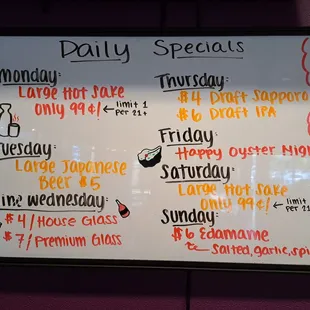 Daily Specials
Monday:
Large Hot Sake
only 99¢! ← limit 1 per 21+
Tuesday:
Large Japanese
Beer $5
Wednesday:
$4/House Glass
$7/Premium Glass
Thursday:
$4 Draft Sapporo
$6 Draft IPA
Friday:
Happy Oyster Night
Saturday:
Large Hot Sake
only 99¢! ← limit per 21
Sunday:
$6 Edamame
Salted, garlic,